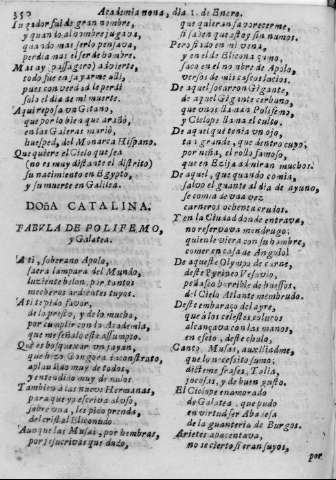 350 Academia nona, dia 1. de Enero.
Iugador fui de gran nombre,
y quanto al nombre jugava,
quando mas serlo pensava,
perdia mas el ser de hombre.
Mas ay (passagero) advierte,
todo fue en jayarme alli,
pues con verdad le perdi
solo el dia de mi muerte.
Aqui reposa vn Gitano,
que por lo bien que arañó,
en las Galeras murió,
huesped, del Monarca Hispano.
Que quiere el Cielo que sea
(no es muy distante el distrito)
su nacimiento en Egypto,
y su muerte en Galilea.
DOñA CATALINA.
FABVLA DE POLIFEMO,
y Galatea.
A ti, soberano Apolo,
sacra lampara del Mundo,
luziente belon, por tantos
mecheros ardientes tuyos.
A ti te pido favor,
de lo presto, y de lo mucho,
por cumplir con la Academia,
que me señalò este assumpto.
Que es bosquexar vn jayan,
que hizo Gongora de contrato,
aplaudido muy de todos,
y entendido muy de
Tambien à las nueve Hermanas,
para que yo escriva
sobre vna, les pido prenda,
del cristal Eliconudo.
Aunque las Musas, por hembras,
por jesucrivas que dudo,
que quieran favorecerme,
si saben que estoy sin numos.
Pero si todo en mi vena,
y en el de Elicona sumo,
saco en el nombre de Apolo,
versos de mis cascos lucios.
De aquel socarron Gigante,
de aquel Gigante cerbuno,
que vnos llaman Polifemo,
y Ciclope llama el culto.
De aquel que tenia vn ojo,
tan grande, que dentro cupo,
por niña, el rollo famoso,
que en Ezija admiran muchos.
De aquel, que quando comia,
salvo el guante al dia de ayuno,
se comia de vna vez
carneros ochenta crudos.
Y en la Ciudad donde entrava,
no reservava mendrugo:
quien le viera con su hambre,
comer en casa de Angulo!
De aqueste Olympo de carne,
deste Pyrineo Vesovio,
pedaço horrible de huessos,
del Cielo Atlante membrudo.
Deste embaraço del ayre,
que à los celestes coluros
alcançava con las manos,
en efeto, deste chulo,
Canto, Musas, auxiliadme,
que lo necessito sumo;
dicteme frases, Talia,
jocosas, y de buen gusto.
El Ciclope enamorado
de Galatea, que pudo
en virtud ser Abadesa
de la guanteria de Burgos.
Arietes apacentava,
no se cierto si eran suyos,
por